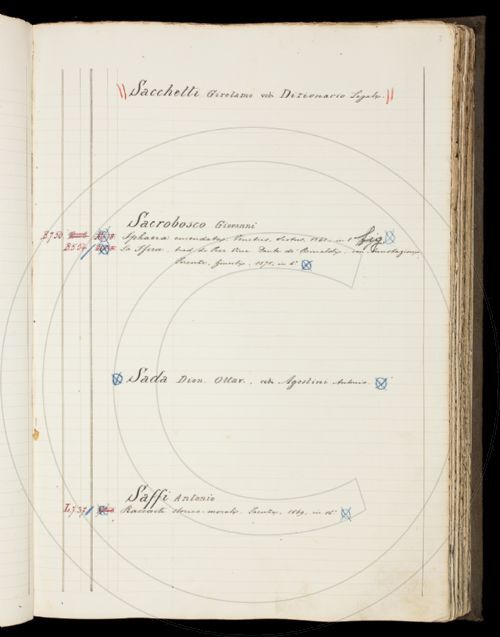 Sacchetti Girolamo ved. Dizionario Legale.
Sacrobosco Giovanni
B.7.50 Sphaera emendata. Venetiis, in 8° fig.
B.5.57 La Sfera, trad. da Pier Vinc. Dante de' Rinaldi, con annotazioni
Firenze, Giunti, 1571, in 8°
Sada Dion. Ottav., ved. Agostini Antonio.
Saffi Antonio
L.7.37 Racconti storico-morali. Firenze, 1869, in 16°